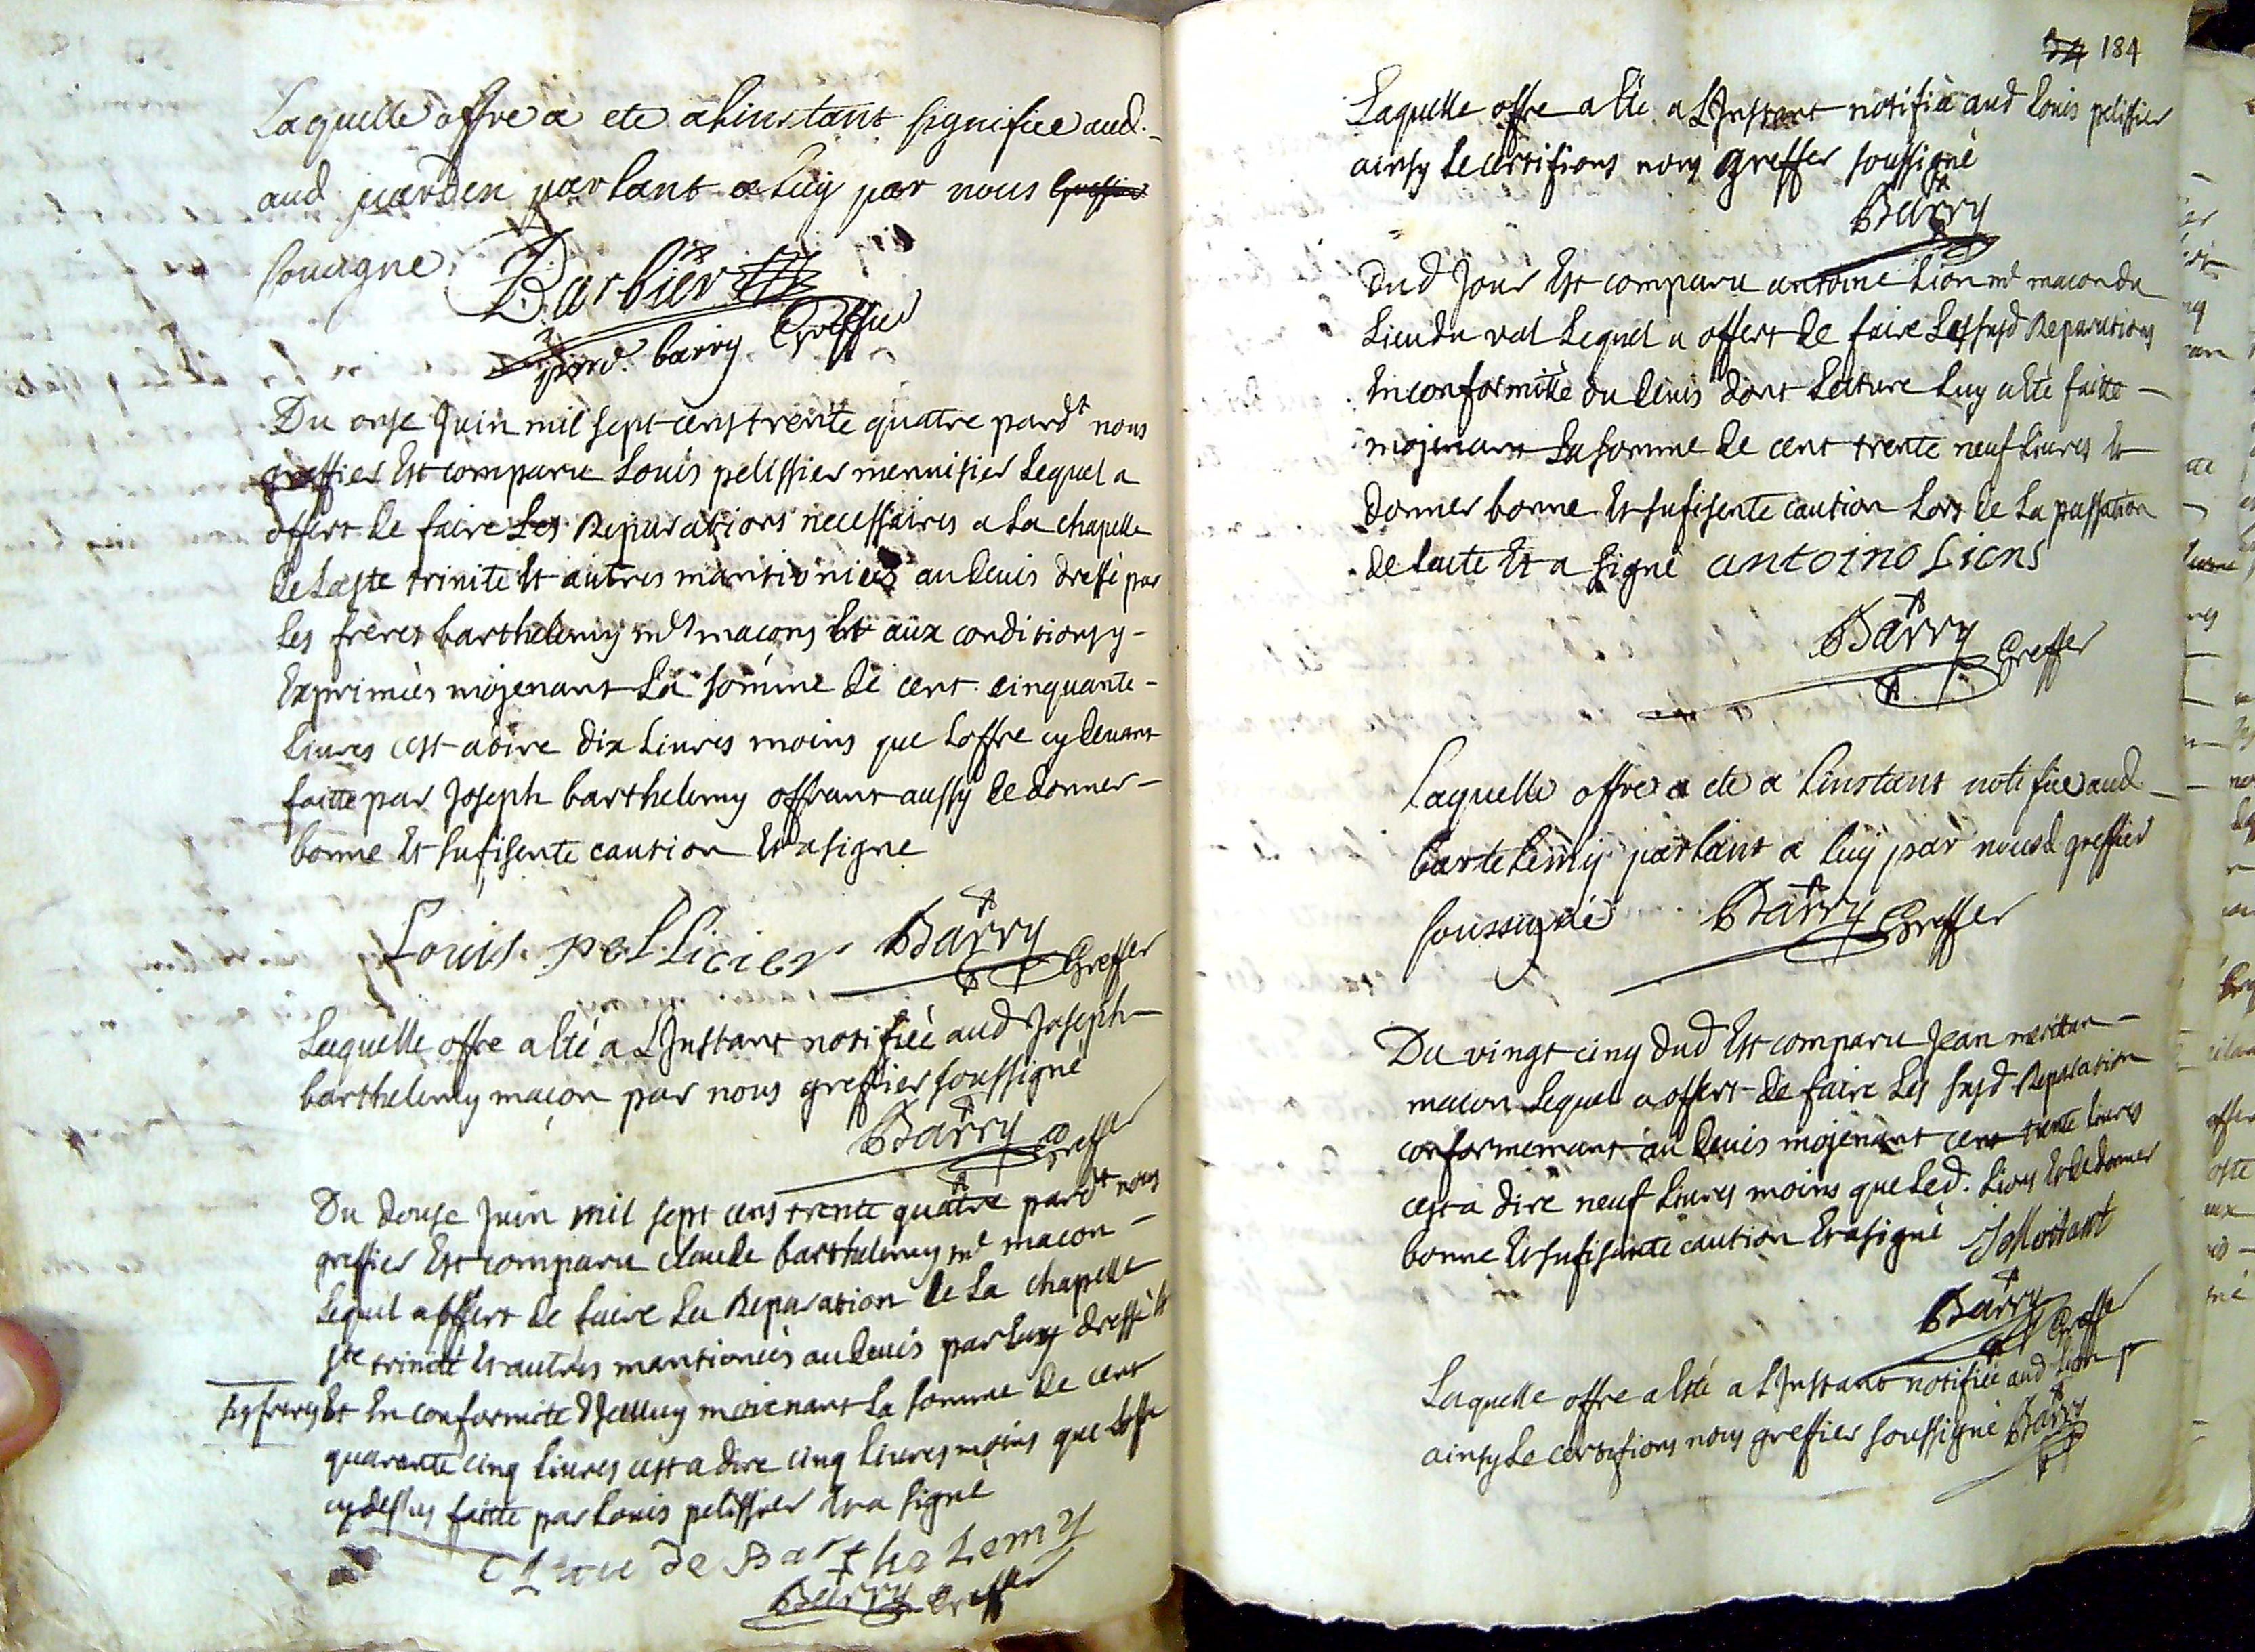 Laquelle offre a ete a linstant signifiee aud.
aud jardin parlant a luy par nous greffier
soussigne Barbier
pour barry Greffier
Du onze Juin mil sept cens trente quatre pardt nous
greffier Est comparu Louis pelissier menuisier Lequel a
offert de faire Les Reparations necessaires a La chapelle
de La ste trinite Et autres mantioniees au devis dressé par
Les freres barthelemy mds macons Et aux conditions y
Exprimées mojenant La somme de cent cinquante
livres cest adire dix Livres moins que Loffre cy devant
faitte par Joseph barthelemy offrant aussy de donner
bonne Et sufisente caution Et a signe
Louis pellicier Barry Greffier
Laquelle offre a Eté a L'Instant notifiée aud Joseph
barthelemy maçon par nous greffier soussigné
Barry Greffier
Du douze Juin mil sept cens trente quatre pardt nous
greffier Est comparu claude barthelemy me macon
Lequel a offert de faire La Reparation de La chapelle
ste trinité Et autres mantioniées au devis par Luy dressé Et
ses freres Et En conformite d'Jcelluy moienant La somme de cent
quarante cinq Livres cest a dire cinq Livres moins que Loffre
cy dessus faitte par Louis pelissier Et a signé
Claude Barthelemy
Barry Greffier
184
Laquelle offre a Eté a L'Instant notifiée aud Louis pelissier
ainsy Le certifions nous greffier soussigné
Barry
Dud Jour Est comparu antoine Lion md macon du
Lieu du val Lequel a offert de faire Les susd Reparations
En conformitté du devis dont Lecture Luy a Eté faitte
mojenant La somme de cent trente neuf Livres Et
donner bonne Et sufisente caution Lors de La passation
de Lacte Et a signé antoino Lions
Barry Greffier
Laquelle offre a ete a Linstant notifiee aud
bartelemy parlant a luy par nousd greffier
soussigné Barry Greffier
Du vingt cinq dud Est comparu Jean meritan
macon Lequel a offert de faire Les susd Reparation
conformemant au devis mojenant cent trente Livres
cest a dire neuf Livres moins que Led. Lions Et de donner
bonne Et sufisante caution Et a signé J Meritant
Barry Greffier
Laquelle offre a Eté a L'Instant notifiée aud Lion
ainsy Le certifions nous greffier soussigné Barry